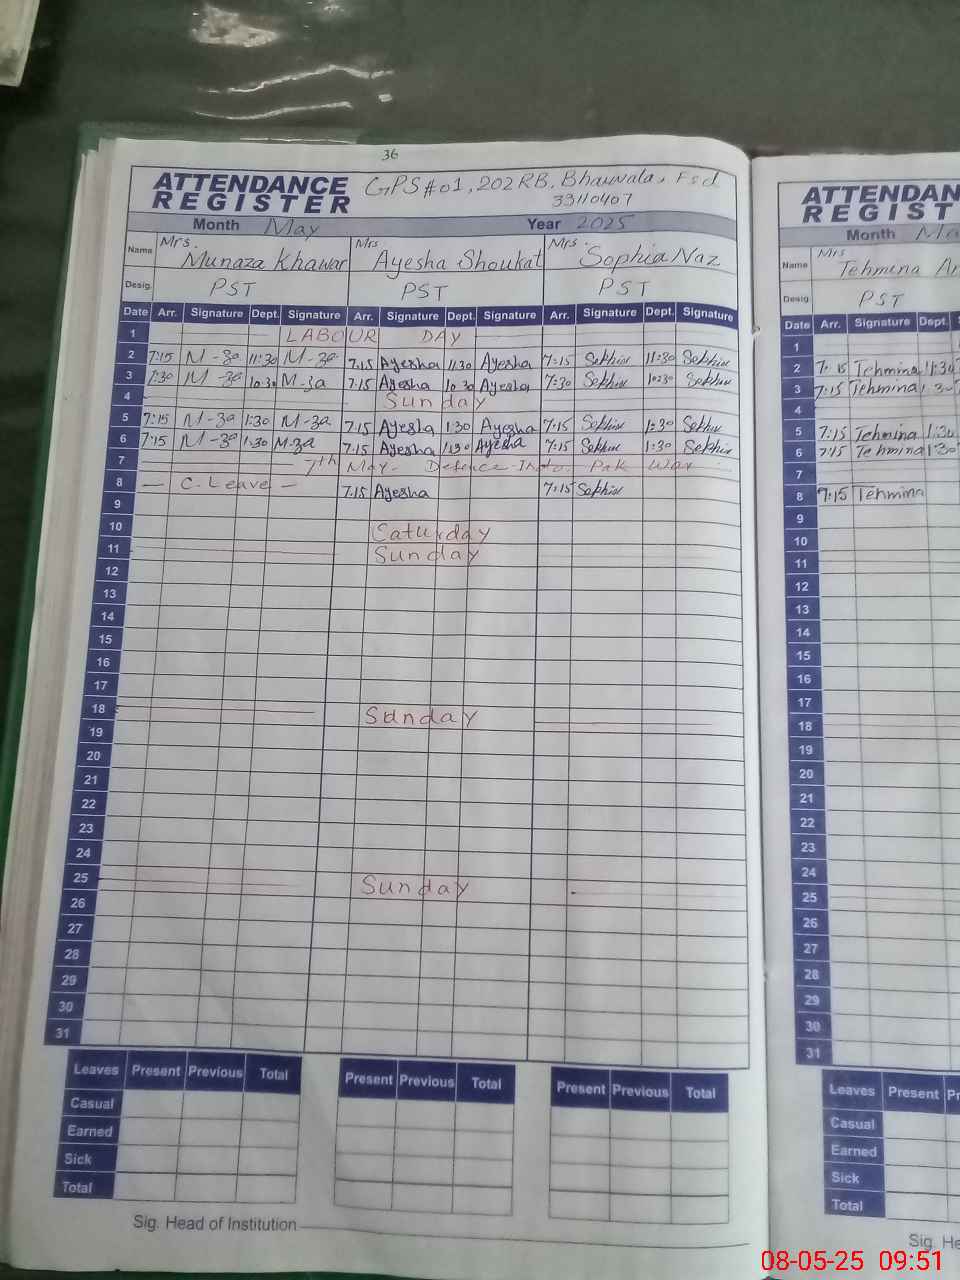 36
ATTENDANCE REGISTER GPS#01, 202RB, Bhaiwala, Fsd
33110407
Month May Year 2025
Name Mrs. Munaza Khawar Mrs Ayesha Shoukat Mrs. Sophia Naz
Desig. PST PST PST
Date Arr. Signature Dept. Signature Arr. Signature Dept. Signature Arr. Signature Dept. Signature
1 LABOUR DAY
2 7:15 11:30 7.15 Ayesha 11:30 Ayesha 7:15 Sophia 11:30 Sophia
3 7:30 10:30 7.15 Ayesha 10:30 Ayesha 7:30 Sophia 10:30 Sophia
4 Sunday
5 7:15 1:30 7:15 Ayesha 1:30 Ayesha 7:15 Sophia 1:30 Sophia
6 7:15 1:30 7.15 Ayesha 1:30 Ayesha 7:15 Sophia 1:30 Sophia
7 7th May- Defence Indo. Pak War
8 — C. Leave — 7.15 Ayesha 7:15 Sophia
9
10 Caturday
11 Sunday
12
13
14
15
16
17
18 Sunday
19
20
21
22
23
24
25 Sunday
26
27
28
29
30
31
Leaves Present Previous Total Present Previous Total Present Previous Total
Casual
Earned
Sick
Total
Sig. Head of Institution
ATTENDAN
REGIST
Month
Name Mrs Tehmina
Desig. PST
Date Arr. Signature Dept.
1
2 7:15 Tehmina 11:30
3 7:15 Tehmina
4
5 7:15 Tehmina 1:30
6 7:15 Tehmina 1:30
7
8 7:15 Tehmina
9
10
11
12
13
14
15
16
17
18
19
20
21
22
23
24
25
26
27
28
29
30
31
Leaves Present
Casual
Earned
Sick
Total
Sig.
08-05-25 09:51